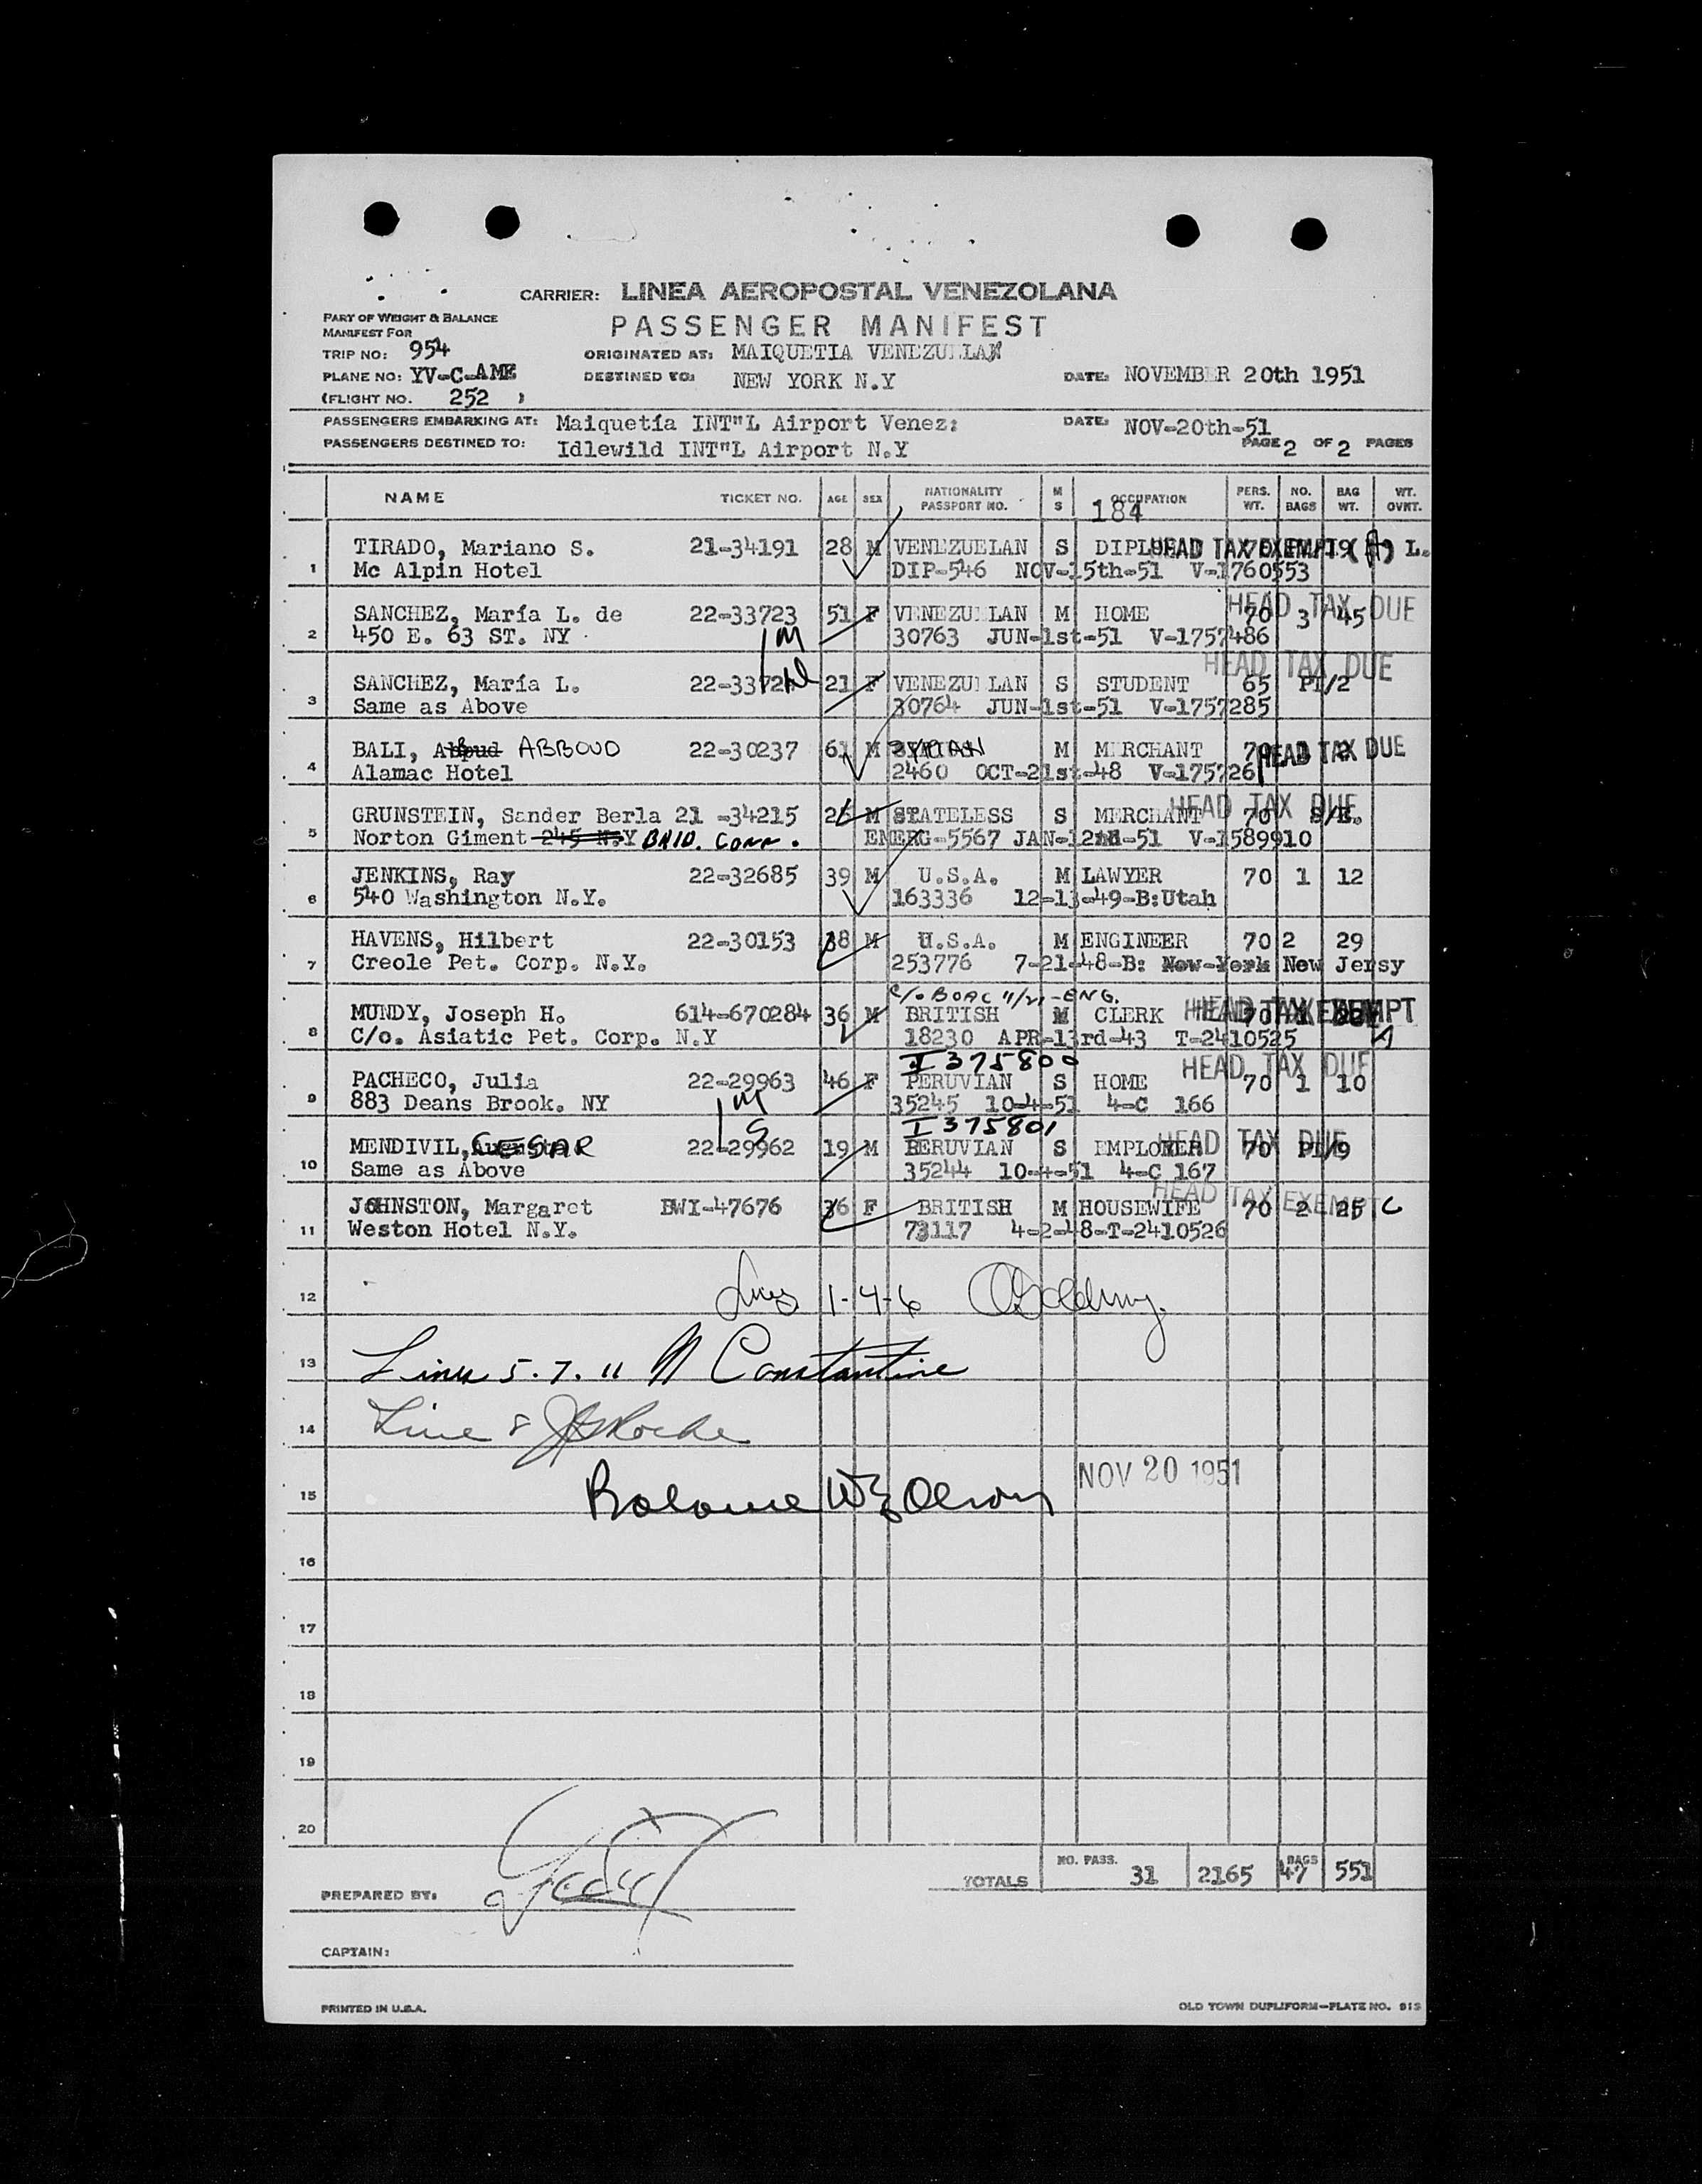 CARRIER: LINEA AEROPOSTAL VENEZOLANA
PART OF WEIGHT & BALANCE
MANIFEST FOR
PASSENGER MANIFEST
TRIP NO: 954
ORIGINATED AT: MAIQUETIA VENEZUELA
PLANE NO: YV-C-AME
DESTINED TO: NEW YORK N.Y
DATE: NOVEMBER 20th 1951
(FLIGHT NO. 252 )
PASSENGERS EMBARKING AT: Maiquetía INT"L Airport Venez:
DATE: NOV-20th-51
PASSENGERS DESTINED TO: Idlewild INT"L Airport N.Y
PAGE 2 OF 2 PAGES
NAME TICKET NO. AGE SEX NATIONALITY PASSPORT NO. M S OCCUPATION PERS. WT. NO. BAGS BAG WT. WT. OVNT.
184
TIRADO, Mariano S. 21-34191 28 M VENEZUELAN S HEAD TAX EXEMPT (A) L.
1 Mc Alpin Hotel DIP-546 NOV-15th-51 V-1760553
SANCHEZ, María L. de 22-33723 51 F VENEZUELAN M HOME 70 3 45 HEAD TAX DUE
2 450 E. 63 ST. NY 30763 JUN-1st-51 V-1757486
M
SANCHEZ, María L. 22-33724 21 F VENEZUELAN S STUDENT 65 PI/2 HEAD TAX DUE
3 Same as Above 30764 JUN-1st-51 V-1757285
BALI, ABBOUD 22-30237 61 M SYRIAN M MERCHANT 70 HEAD TAX DUE
4 Alamac Hotel 2460 OCT-21st-48 V-175726
GRUNSTEIN, Sander Berla 21 -34215 26 M STATELESS S MERCHANT 70 S/E. HEAD TAX DUE
5 Norton Giment 245 N.Y Conn. EMERG-5567 JAN-12nd-51 V-1589910
JENKINS, Ray 22-32685 39 M U.S.A. M LAWYER 70 1 12
6 540 Washington N.Y. 163336 12-13-49-B:Utah
HAVENS, Hilbert 22-30153 38 M U.S.A. M ENGINEER 70 2 29
7 Creole Pet. Corp. N.Y. 253776 7-21-48-B: New York New Jersy
c/o BOAC 11/21 - ENG.
MUNDY, Joseph H. 614-670284 36 M BRITISH M CLERK 70 HEAD TAX EXEMPT
8 C/o. Asiatic Pet. Corp. N.Y 18230 APR-13rd-43 T-2410525
I 375800
PACHECO, Julia 22-29963 46 F PERUVIAN S HOME 70 1 10 HEAD TAX DUE
9 883 Deans Brook. NY 35245 10-4-51 4-C 166
M
S
I 375801
MENDIVIL, CESAR 22-29962 19 M PERUVIAN S EMPLOYER 70 PI/9 HEAD TAX DUE
10 Same as Above 35244 10-4-51 4-C 167
JOHNSTON, Margaret BWI-47676 36 F BRITISH M HOUSEWIFE 70 2 25 HEAD TAX EXEMPT C
11 Weston Hotel N.Y. 73117 4-2-48-T-2410526
12 Lines 1-4-6
13 Lines 5.7.11 N Constantine
14 Line 8 Roche
NOV 20 1951
15 Balance
16
17
18
19
20
TOTALS NO. PASS. 31 2165 BAGS 47 551
PREPARED BY:
CAPTAIN:
PRINTED IN U.S.A.
OLD TOWN DUPLIFORM-PLATE NO. 913